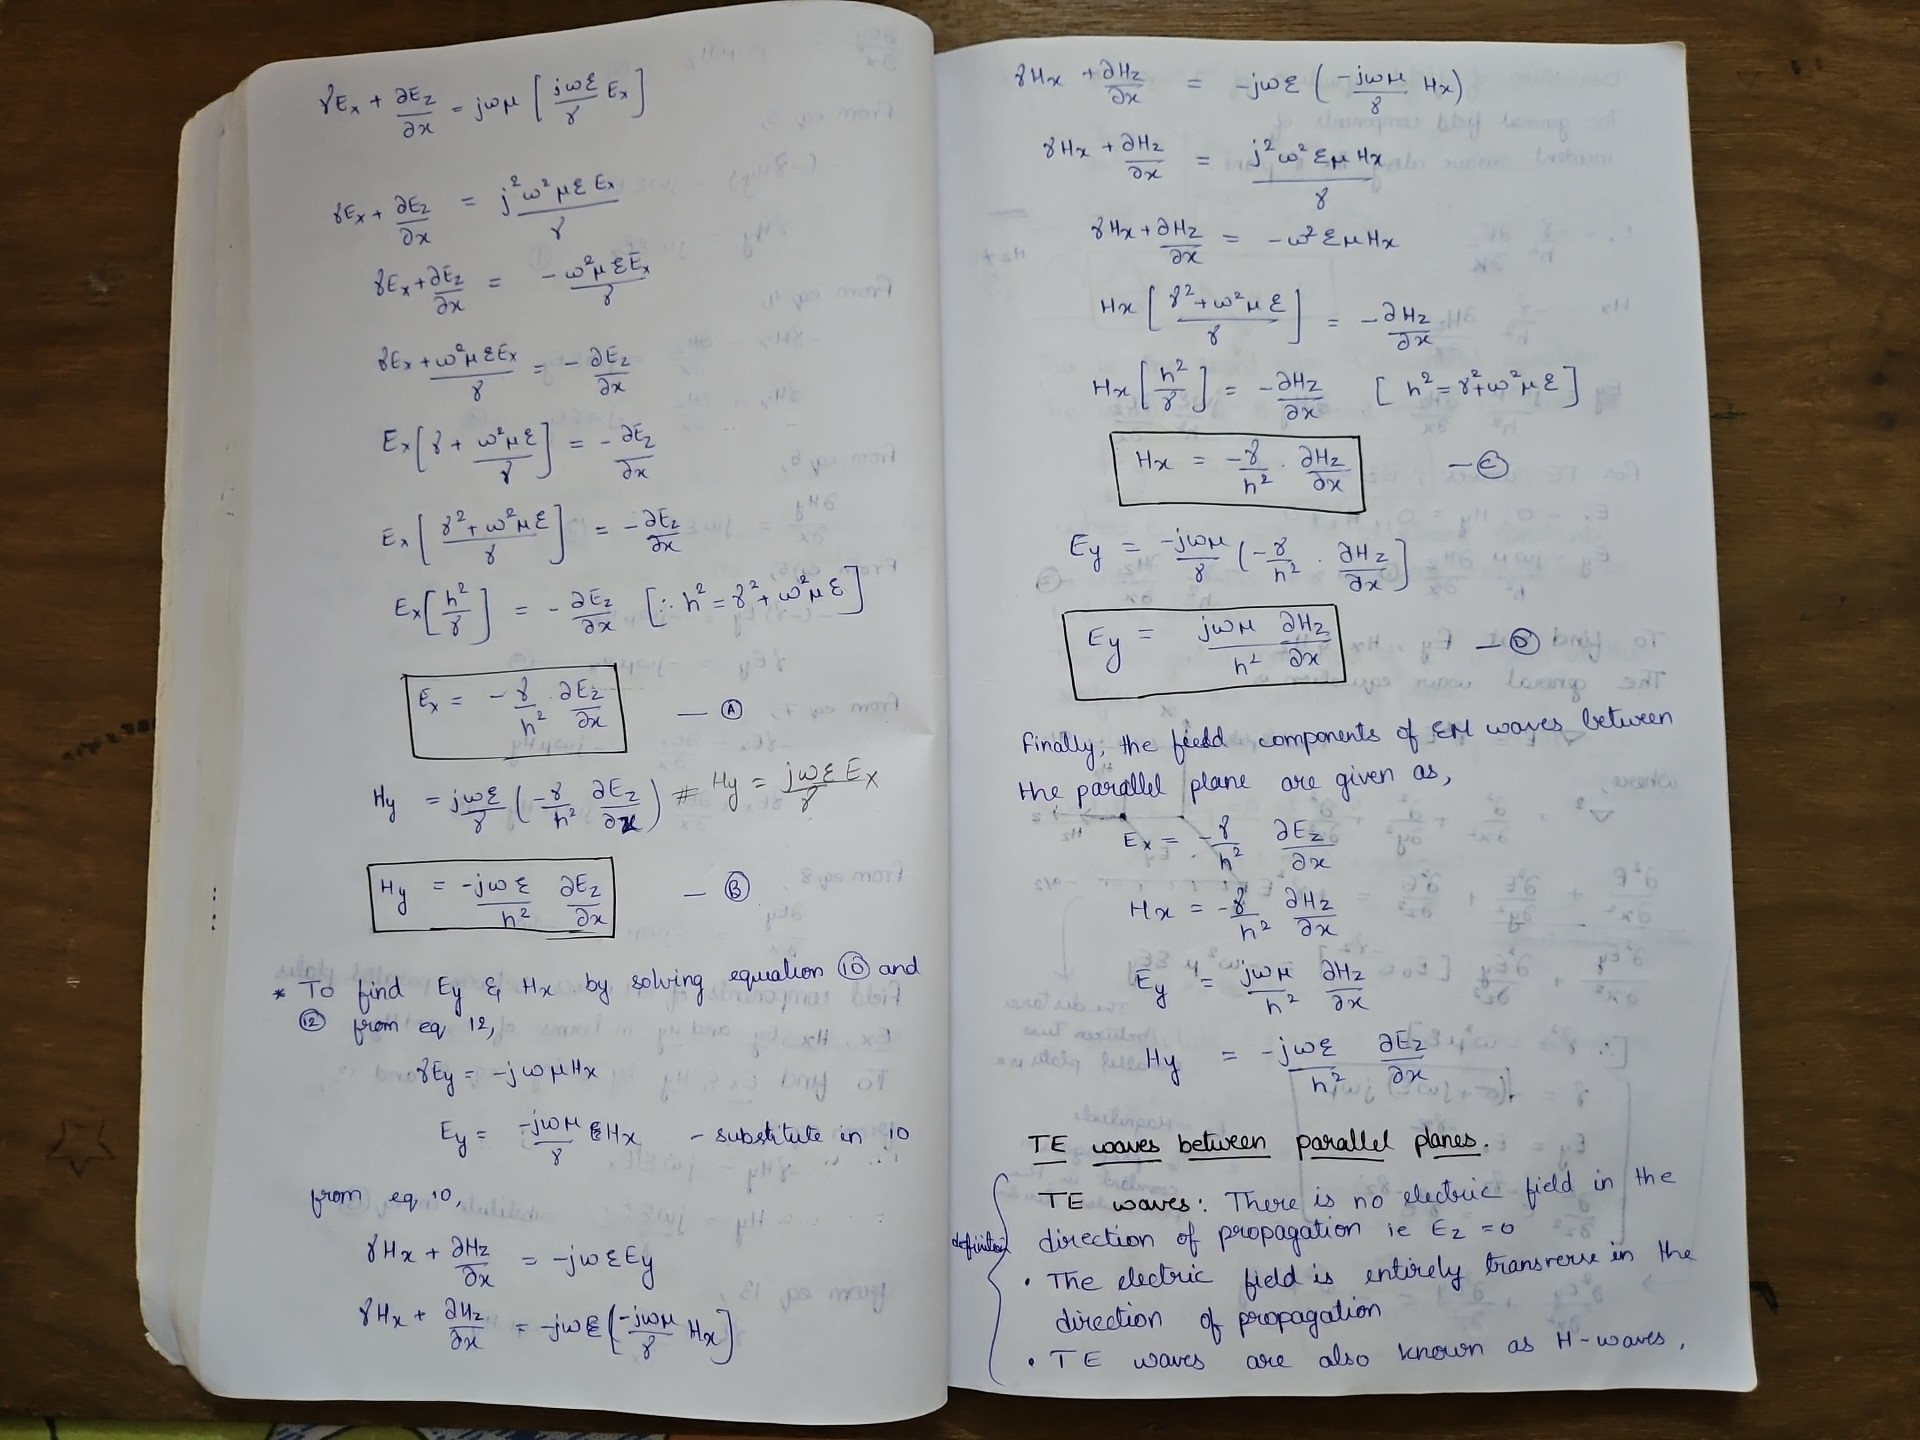 γEx + ∂Ez/∂x = jωμ [ jωε/γ Ex ]
γEx + ∂Ez/∂x = j²ω²με Ex / γ
γEx + ∂Ez/∂x = - ω²με Ex / γ
γEx + ω²μεEx / γ = - ∂Ez/∂x
Ex [ γ + ω²με/γ ] = - ∂Ez/∂x
Ex [ γ² + ω²με / γ ] = - ∂Ez/∂x
Ex [ h²/γ ] = - ∂Ez/∂x [∵ h² = γ² + ω²με ]
Ex = - γ/h² . ∂Ez/∂x — Ⓐ
Hy = jωε/γ ( -γ/h² ∂Ez/∂x ) # Hy = jωε Ex / γ
Hy = -jωε/h² ∂Ez/∂x — Ⓑ
* To find Ey & Hx by solving equation ⑩ and
⑫ from eq 12,
γEy = -jωμHx
Ey = -jωμ/γ Hx - substitute in 10
from eq 10,
γHx + ∂Hz/∂x = -jωεEy
γHx + ∂Hz/∂x = -jωε ( -jωμ/γ Hx ]
γHx + ∂Hz/∂x = -jωε ( -jωμ/γ Hx )
γHx + ∂Hz/∂x = j²ω²εμHx / γ
γHx + ∂Hz/∂x = -ω²εμHx
Hx [ γ² + ω²με / γ ] = - ∂Hz/∂x
Hx [ h²/γ ] = - ∂Hz/∂x [ h² = γ² + ω²με ]
Hx = -γ/h² . ∂Hz/∂x — Ⓒ
Ey = -jωμ/γ ( -γ/h² . ∂Hz/∂x ]
Ey = jωμ/h² ∂Hz/∂x — Ⓓ
Finally, the field components of EM waves between
the parallel plane are given as,
Ex = -γ/h² ∂Ez/∂x
Hx = -γ/h² ∂Hz/∂x
Ey = jωμ/h² ∂Hz/∂x
Hy = -jωε/h² ∂Ez/∂x
TE waves between parallel planes.
TE waves: There is no electric field in the
definition direction of propagation ie Ez = 0
• The electric field is entirely transverse in the
direction of propagation
• TE waves are also known as H-waves,